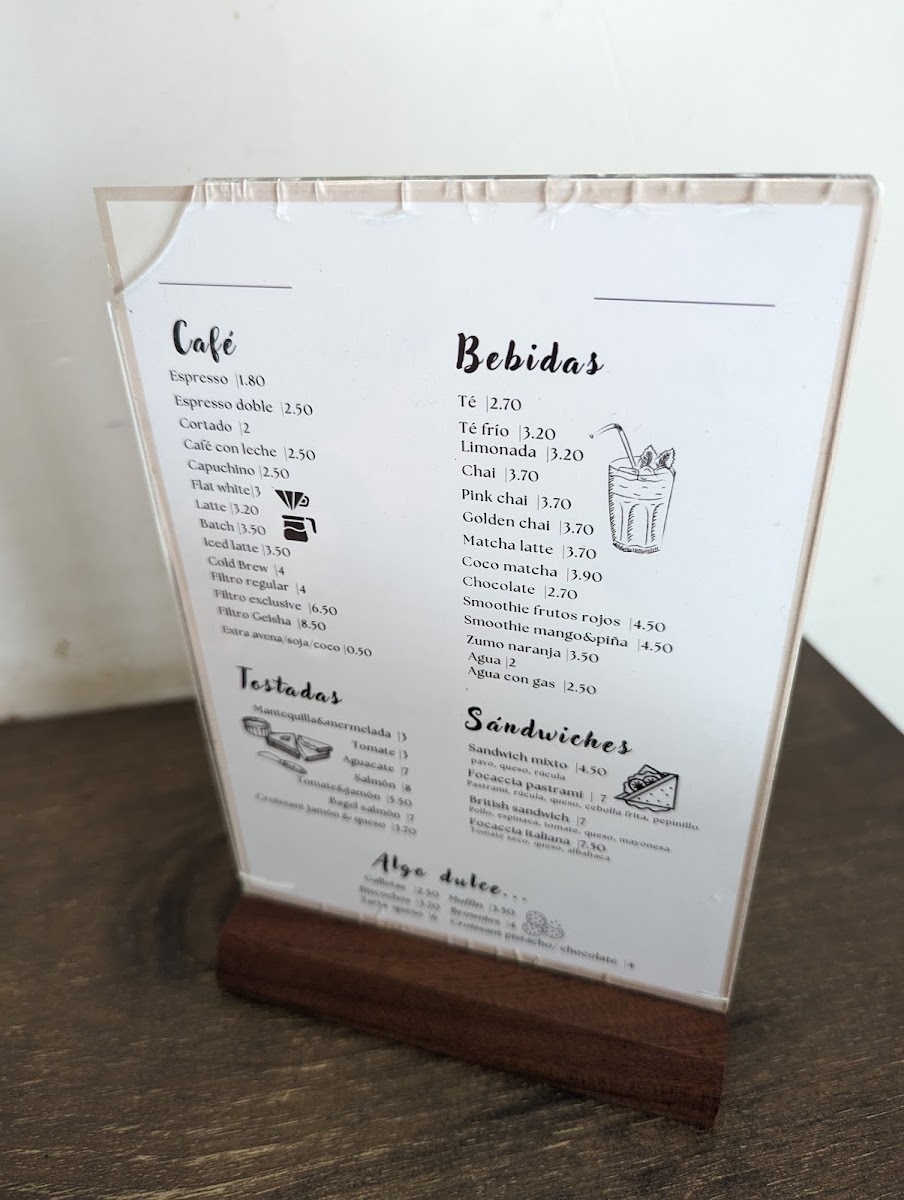 Café
Espresso |1.80
Espresso doble |2.50
Cortado |2
Café con leche |2.50
Capuchino |2.50
Flat white|3
Latte |3.20
Batch |3.50
Iced latte |3.50
Cold Brew |4
Filtro regular |4
Filtro exclusive |6.50
Filtro Geisha |8.50
Extra avena/soja/coco |0.50
Tostadas
Mantequilla&mermelada |3
Tomate |3
Aguacate |7
Salmón |8
Tomate&jamón |5.50
Bagel salmón |7
Croissant jamón & queso |3.20
Bebidas
Té |2.70
Té frío |3.20
Limonada |3.20
Chai |3.70
Pink chai |3.70
Golden chai |3.70
Matcha latte |3.70
Coco matcha |3.90
Chocolate |2.70
Smoothie frutos rojos |4.50
Smoothie mango&piña |4.50
Zumo naranja |3.50
Agua |2
Agua con gas |2.50
Sándwiches
Sandwich mixto |4.50
pavo, queso, rúcula
Focaccia pastrami | 7
Pastrami, rúcula, queso, cebolla frita, pepinillo
British sandwich |7
Pollo, espinaca, tomate, queso, mayonesa
Focaccia italiana |7.50
Tomate seco, queso, albahaca
Algo dulce...
Galletas |2.50
Bizcochos |3.70
Tarta queso |6
Muffin |3.50
Brownies |4
Croissant pistacho/ chocolate |4